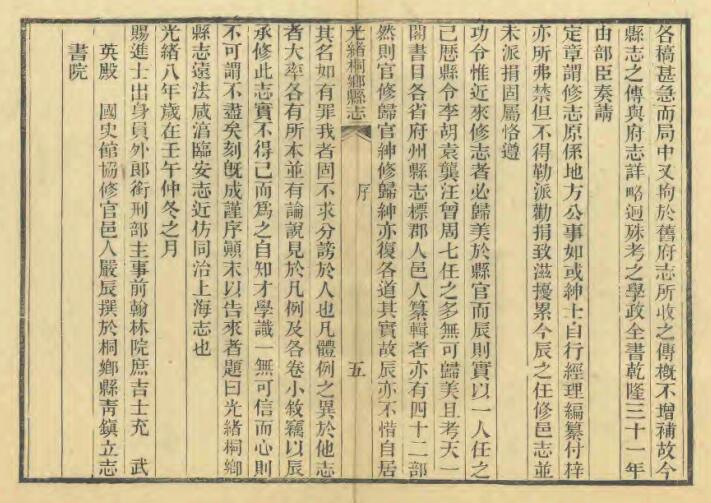 各稿甚急而局中又拘於舊府志所收之傳槪不增補故今
縣志之傳與府志詳略迥殊考之學政全書乾隆三十一年
由部臣奏請
定章謂修志原係地方公事如或紳士自行經理編纂付梓
亦所弗禁但不得勒派勸捐致滋擾累今辰之任修邑志並
未派捐固屬恪遵
功令惟近來修志者必歸美於縣官而辰則實以一人任之
已歷縣令李胡袁龔汪曾周七任之多無可歸美且考天一
閣書目各省府州縣志標郡人邑人纂輯者亦有四十二部
然則官修歸官紳修歸紳亦復各道其實故辰亦不惜自居
光緒桐鄉縣志 序 五
其名如有罪我者固不求分謗於人也凡體例之異於他志
者大率各有所本並有論說見於凡例及各卷小敘竊以辰
承修此志實不得已而爲之自知才學識一無可信而心則
不可謂不盡矣刻旣成謹序顚末以告來者題曰光緒桐鄉
縣志遠法咸淳臨安志近仿同治上海志也
光緒八年歲在壬午仲冬之月
賜進士出身員外郎銜刑部主事前翰林院庶吉士充 武
英殿 國史館協修官邑人嚴辰撰於桐鄉縣靑鎭立志
書院